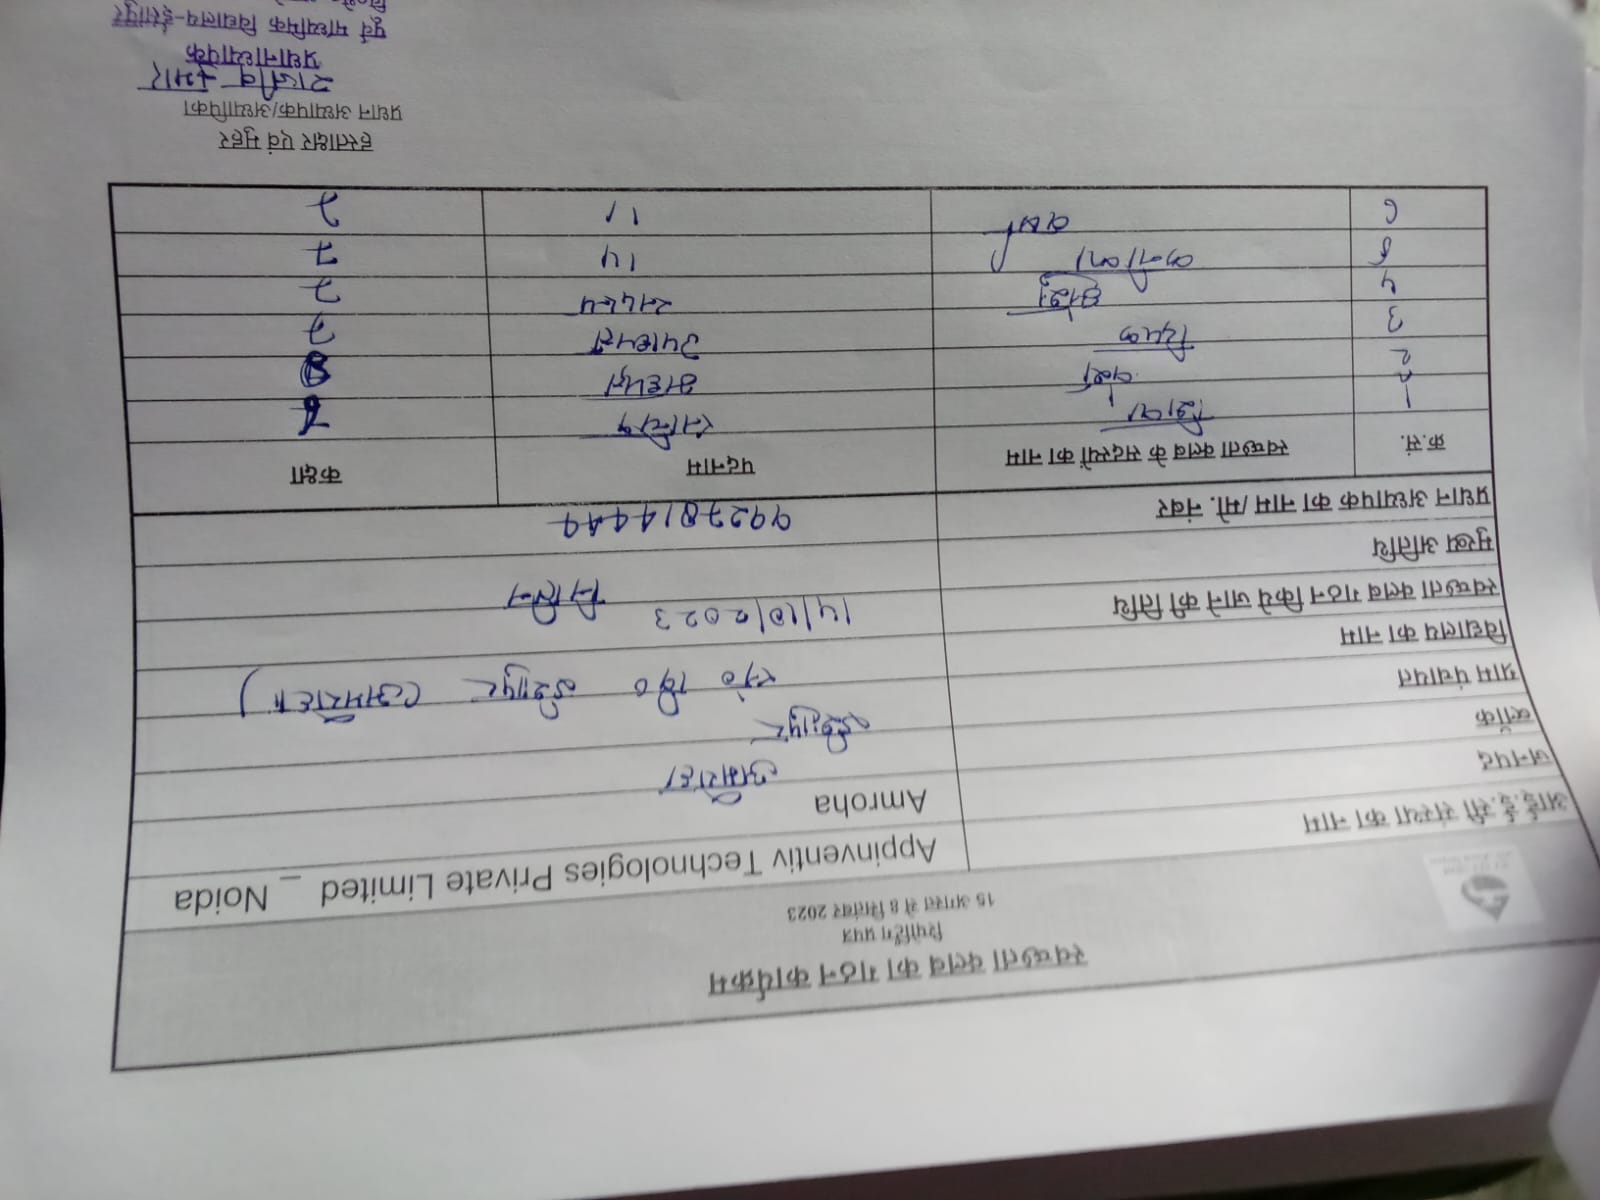 स्वच्छता क्लब का गठन कार्यक्रम
रिपोर्टिंग प्रपत्र
15 अगस्त से 8 सितंबर 2023
आई.ई.सी संस्था का नाम Appinventiv Technologies Private Limited _ Noida
जनपद Amroha
ब्लॉक अमरोहा
ग्राम पंचायत ईशापुर
विद्यालय का नाम ईशापुर (अमरोहा)
स्वच्छता क्लब गठन किये जाने की तिथि 14/10/2023
मुख्य अतिथि
प्रधान अध्यापक का नाम/मो. नंबर
क्र.सं. स्वच्छता क्लब के सदस्यों का नाम पदनाम कक्षा
1
2 8
3 दिपक उपाध्यक्ष 7
4 सदस्य 7
5 11 7
6 11 7
हस्ताक्षर एवं मुहर
प्रधान अध्यापक/अध्यापिका
राजीव कुमार
प्रधानाध्यापक
पूर्व माध्यमिक विद्यालय-ईशापुर